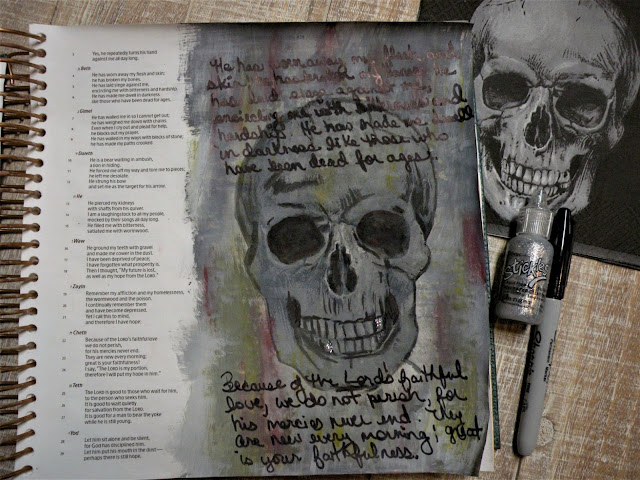 3 Yes, he repeatedly turns his hand
against me all day long.
ב Beth
4 He has worn away my flesh and skin;
he has broken my bones.
5 He has laid siege against me,
encircling me with bitterness and hardship.
6 He has made me dwell in darkness
like those who have been dead for ages.
ג Gimel
7 He has walled me in so I cannot get out;
he has weighed me down with chains.
8 Even when I cry out and plead for help,
he blocks out my prayer.
9 He has walled in my ways with blocks of stone;
he has made my paths crooked.
ד Daleth
10 He is a bear waiting in ambush,
a lion in hiding.
11 He forced me off my way and tore me to pieces;
he left me desolate.
12 He strung his bow
and set me as the target for his arrow.
ה He
13 He pierced my kidneys
with shafts from his quiver.
14 I am a laughingstock to all my people,
mocked by their songs all day long.
15 He filled me with bitterness,
satiated me with wormwood.
ו Waw
16 He ground my teeth with gravel
and made me cower in the dust.
17 I have been deprived of peace;
I have forgotten what prosperity is.
18 Then I thought, "My future is lost,
as well as my hope from the LORD."
ז Zayin
19 Remember my affliction and my homelessness,
the wormwood and the poison.
20 I continually remember them
and have become depressed.
21 Yet I call this to mind,
and therefore I have hope.
ח Cheth
22 Because of the LORD's faithful love
we do not perish,
for his mercies never end.
23 They are new every morning;
great is your faithfulness!
24 I say, "The LORD is my portion,
therefore I will put my hope in him."
ט Teth
25 The LORD is good to those who wait for him,
to the person who seeks him.
26 It is good to wait quietly
for salvation from the LORD.
27 It is good for a man to bear the yoke
while he is still young.
י Yod
28 Let him sit alone and be silent,
for God has disciplined him.
29 Let him put his mouth in the dust—
perhaps there is still hope.
He has worn away my flesh and
skin; he has broken my bones. He
has laid siege against me,
encircling me with bitterness and
hardship. He has made me dwell
in darkness like those who
have been dead for ages.
Because of the Lord's faithful
love, we do not perish, for
his mercies never end. They
are new every morning; great
is your faithfulness.
Stickles